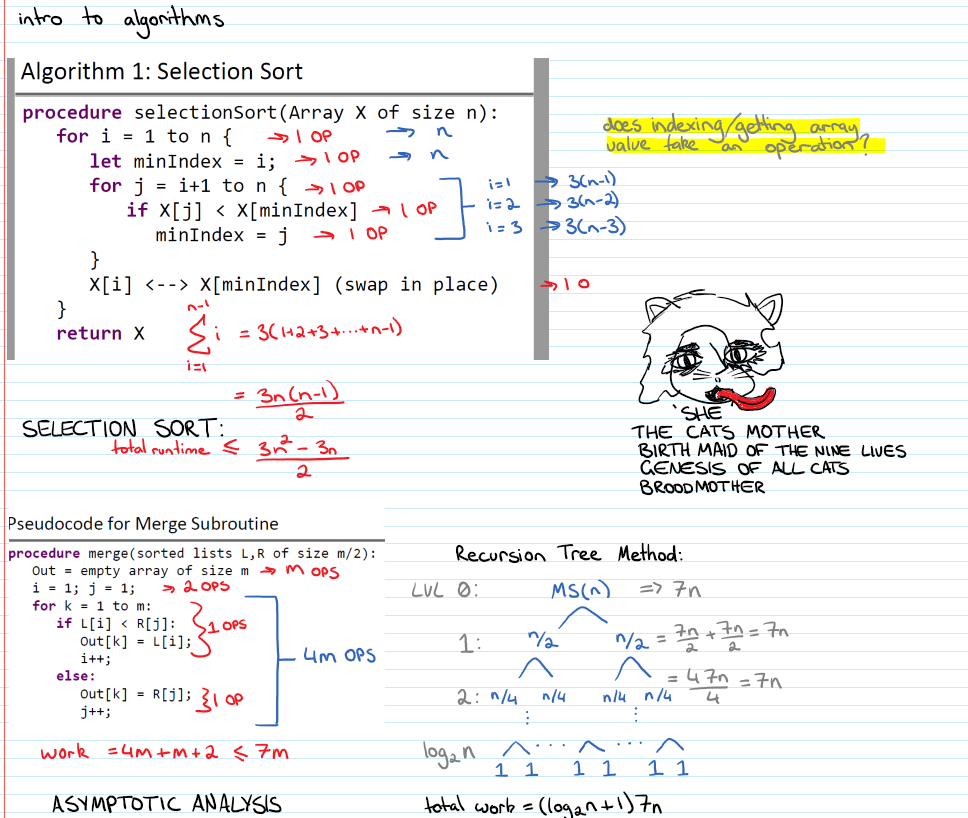 intro to algorithms
Algorithm 1: Selection Sort
procedure selectionSort(Array X of size n):
for i = 1 to n { → 1 OP → n
let minIndex = i; → 1 OP → n
for j = i+1 to n { → 1 OP
if X[j] < X[minIndex] → 1 OP
minIndex = j → 1 OP
}
X[i] <--> X[minIndex] (swap in place) → 1 0
}
return X
i=1 → 3(n-1)
i=2 → 3(n-2)
i=3 → 3(n-3)
does indexing/getting array
value take an operation?
n-1
∑ i = 3(1+2+3+...+n-1)
i=1
= 3n(n-1)/2
SELECTION SORT:
total runtime ≤ 3n² - 3n / 2
'SHE'
THE CATS MOTHER
BIRTH MAID OF THE NINE LIVES
GENESIS OF ALL CATS
BROODMOTHER
Pseudocode for Merge Subroutine
procedure merge(sorted lists L,R of size m/2):
Out = empty array of size m → m OPS
i = 1; j = 1; → 2 OPS
for k = 1 to m:
if L[i] < R[j]: } 1 OPS
Out[k] = L[i];
i++;
else:
Out[k] = R[j]; } 1 OP
j++;
4m OPS
work = 4m+m+2 ≤ 7m
ASYMPTOTIC ANALYSIS
Recursion Tree Method:
LVL 0: MS(n) => 7n
1: n/2 n/2 = 7n/2 + 7n/2 = 7n
2: n/4 n/4 n/4 n/4 = 4 7n/4 = 7n
⋮ ⋮
log₂n ... ...
1 1 1 1 1 1
total work = (log₂n+1)7n